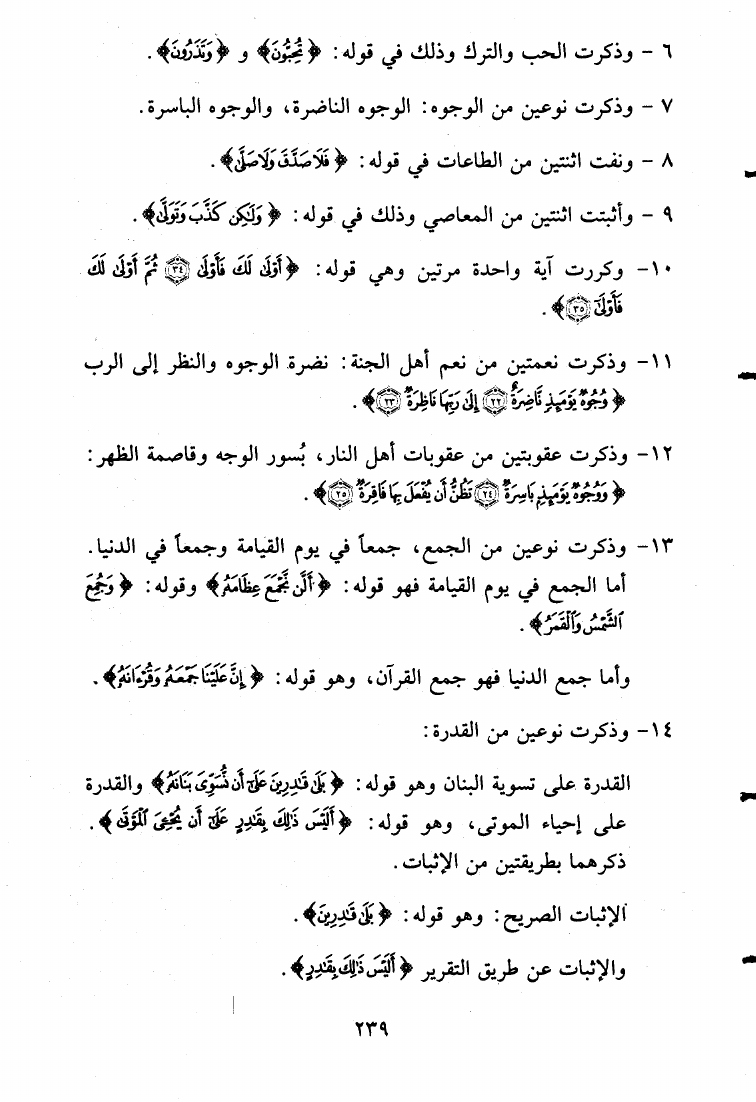 ٦ - وذكرت الحب والترك وذلك في قوله: ﴿تُحِبُّونَ﴾ و ﴿وَتَذَرُونَ﴾.
٧ - وذكرت نوعين من الوجوه: الوجوه الناضرة، والوجوه الباسرة.
٨ - ونفت اثنتين من الطاعات في قوله: ﴿فَلَا صَدَّقَ وَلَا صَلَّىٰ﴾.
٩ - وأثبتت اثنتين من المعاصي وذلك في قوله: ﴿وَلَٰكِن كَذَّبَ وَتَوَلَّىٰ﴾.
١٠- وكررت آية واحدة مرتين وهي قوله: ﴿أَوْلَىٰ لَكَ فَأَوْلَىٰ ٣٤ ثُمَّ أَوْلَىٰ لَكَ
فَأَوْلَىٰٓ ٣٥﴾.
١١- وذكرت نعمتين من نعم أهل الجنة: نضرة الوجوه والنظر إلى الرب
﴿وُجُوهٌ يَوْمَئِذٍ نَّاضِرَةٌ ٢٢ إِلَىٰ رَبِّهَا نَاظِرَةٌ ٢٣﴾.
١٢- وذكرت عقوبتين من عقوبات أهل النار، بُسور الوجه وقاصمة الظهر:
﴿وَوُجُوهٌ يَوْمَئِذٍ بَاسِرَةٌ ٢٤ تَظُنُّ أَن يُفْعَلَ بِهَا فَاقِرَةٌ ٢٥﴾.
١٣- وذكرت نوعين من الجمع، جمعاً في يوم القيامة وجمعاً في الدنيا.
أما الجمع في يوم القيامة فهو قوله: ﴿أَلَّن نَّجْمَعَ عِظَامَهُۥ﴾ وقوله: ﴿وَجُمِعَ
ٱلشَّمْسُ وَٱلْقَمَرُ﴾.
وأما جمع الدنيا فهو جمع القرآن، وهو قوله: ﴿إِنَّ عَلَيْنَا جَمْعَهُۥ وَقُرْءَانَهُۥ﴾.
١٤- وذكرت نوعين من القدرة:
القدرة على تسوية البنان وهو قوله: ﴿بَلَىٰ قَٰدِرِينَ عَلَىٰٓ أَن نُّسَوِّىَ بَنَانَهُۥ﴾ والقدرة
على إحياء الموتى، وهو قوله: ﴿أَلَيْسَ ذَٰلِكَ بِقَٰدِرٍ عَلَىٰٓ أَن يُحْۦِىَ ٱلْمَوْتَىٰ﴾.
ذكرهما بطريقتين من الإثبات.
الإثبات الصريح: وهو قوله: ﴿بَلَىٰ قَٰدِرِينَ﴾.
والإثبات عن طريق التقرير ﴿أَلَيْسَ ذَٰلِكَ بِقَٰدِرٍ﴾.
٢٣٩